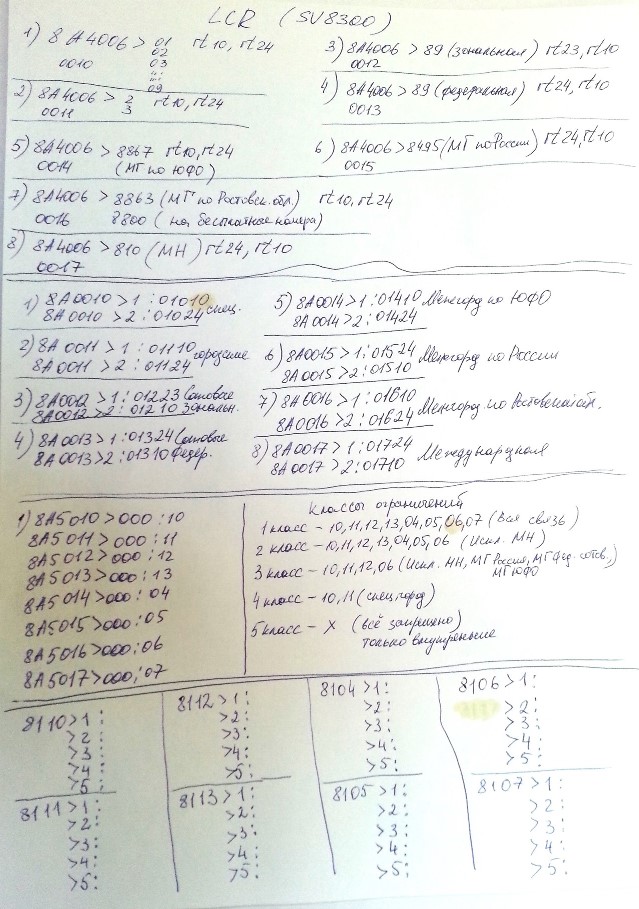 LCR (SV8300)
1) 8A4006 > 01 rt10, rt24
02
0010 03
09
2) 8A4006 > 2 rt10, rt24
0011 3
3) 8A4006 > 89 (зональная) rt23, rt10
0012
4) 8A4006 > 89 (федеральная) rt24, rt10
0013
5) 8A4006 > 8867 rt10, rt24
0014 (МГ по ЮФО)
6) 8A4006 > 8495 (МГ по России) rt24, rt10
0015
7) 8A4006 > 8863 (МГ по Ростовск. обл.) rt10, rt24
0016 8800 (на бесплатные номера)
8) 8A4006 > 810 (МН) rt24, rt10
0017
1) 8A0010 > 1 : 01010
8A0010 > 2 : 01024 спец.
2) 8A0011 > 1 : 01110 городские
8A0011 > 2 : 01124
3) 8A0012 > 1 : 01223 Сотовые
8A0012 > 2 : 01210 Зональн.
4) 8A0013 > 1 : 01324 Сотовые
8A0013 > 2 : 01310 Федер.
5) 8A0014 > 1 : 01410 Межгород по ЮФО
8A0014 > 2 : 01424
6) 8A0015 > 1 : 01524 Межгород по России
8A0015 > 2 : 01510
7) 8A0016 > 1 : 01610
8A0016 > 2 : 01624 Межгород по
8) 8A0017 > 1 : 01724 Международная
8A0017 > 2 : 01710
1) 8A5010 > 000 : 10
8A5011 > 000 : 11
8A5012 > 000 : 12
8A5013 > 000 : 13
8A5014 > 000 : 04
8A5015 > 000 : 05
8A5016 > 000 : 06
8A5017 > 000 : 07
Классы ограничений
1 класс – 10, 11, 12, 13, 04, 05, 06, 07 (Вся связь)
2 класс – 10, 11, 12, 13, 04, 05, 06 (Искл. МН)
3 класс – 10, 11, 12, 06 (Искл. МН, МГ Россия, МГ Фед. сотов.,)
МГ ЮФО
4 класс – 10, 11 (спец, город)
5 класс – X (всё запрещено)
только внутренние
8110 > 1 :
> 2 :
> 3 :
> 4 :
> 5 :
8112 > 1 :
> 2 :
> 3 :
> 4 :
> 5 :
8104 > 1 :
> 2 :
> 3 :
> 4 :
> 5 :
8106 > 1 :
> 2 :
> 3 :
> 4 :
> 5 :
8111 > 1 :
> 2 :
> 3 :
> 4 :
> 5 :
8113 > 1 :
> 2 :
> 3 :
> 4 :
> 5 :
8105 > 1 :
> 2 :
> 3 :
> 4 :
> 5 :
8107 > 1 :
> 2 :
> 3 :
> 4 :
> 5 :